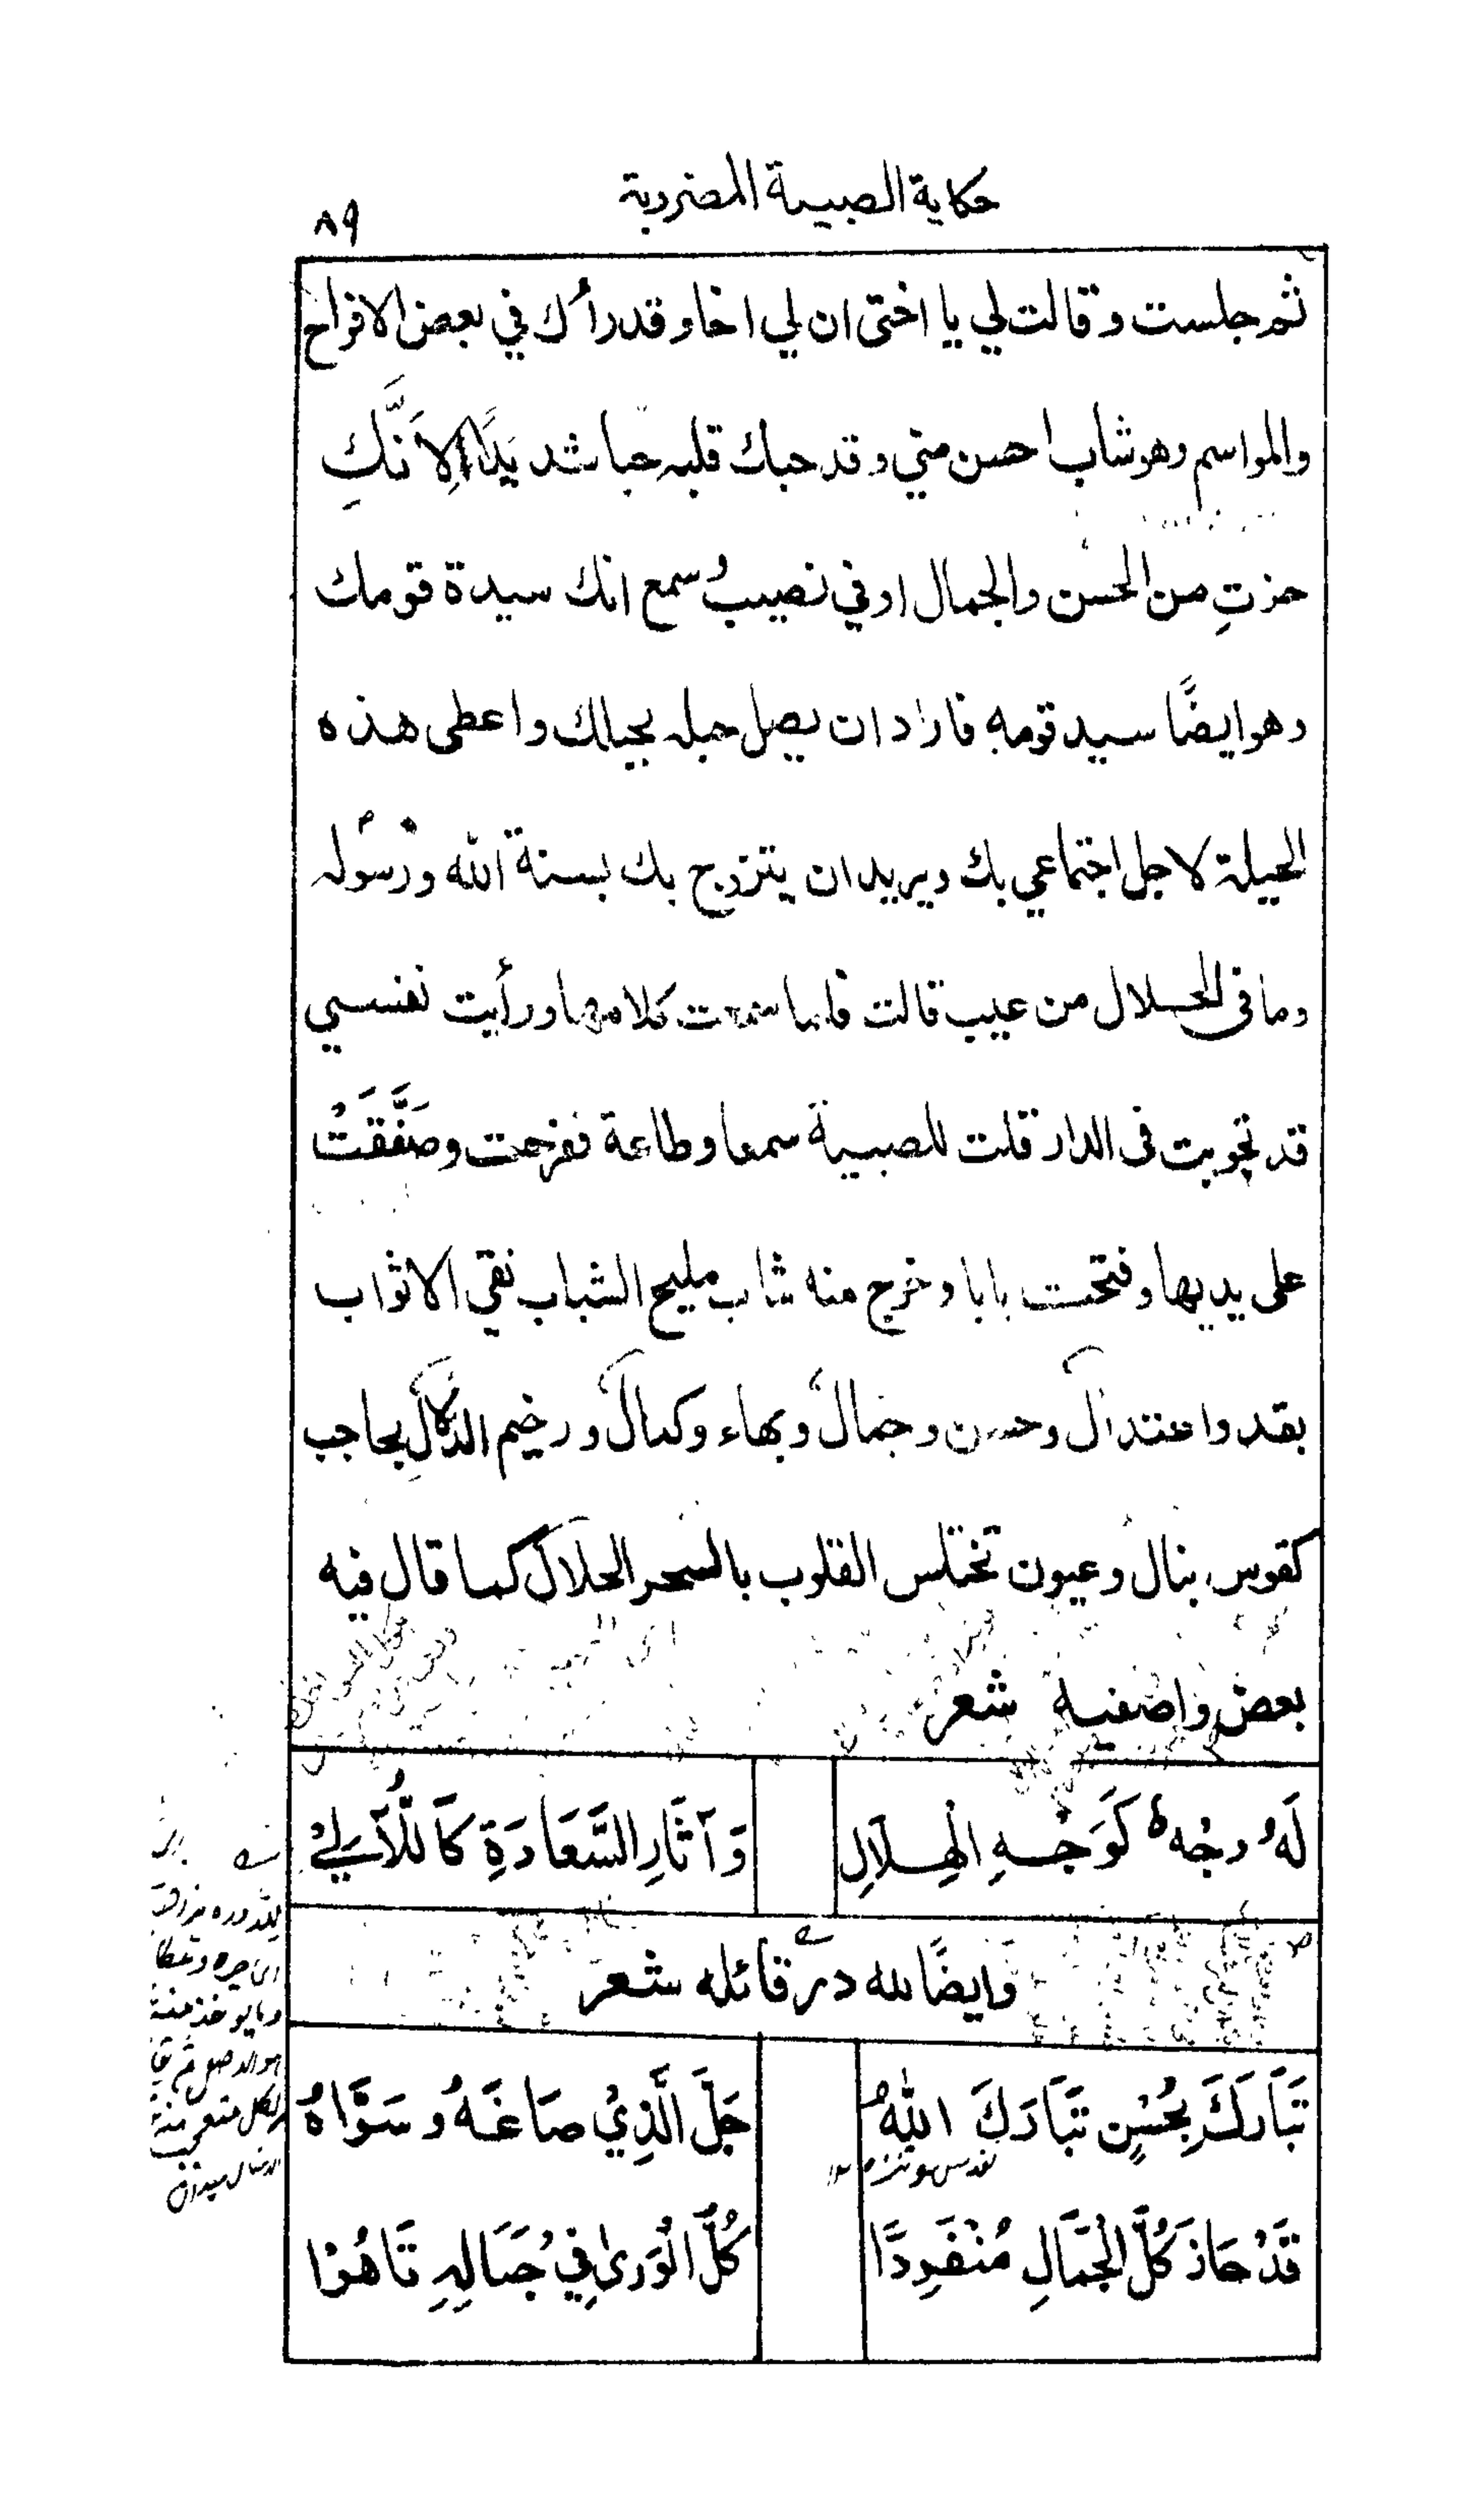 حكاية الصبية المضروبة
٨٩
ثم جلست وقالت لي يا اختي ان لي اخا وقد رأك في بعض الافراح
والمواسم وهو شاب احسن مني وقد حبك قلبه حبا شديدًا لِاَنَّكِ
حزتِ من الحسن والجمال اوفي نصيب وسمع انك سيدة قومك
وهو ايضًا سيد قومه فاراد ان يصل حبله بحبالك واعطى هذه
الحيلة لاجل اجتماعي بك ويريد ان يتزوج بك بسنة الله ورسوله
وما في الحلال من عيب قالت فلما سمعت كلامها ورأيت نفسي
قد تحوبت فى الدار قلت للصبية سمعا وطاعة ففرحت وصَفَّقَتْ
على يديها وفتحت بابا وخرج منه شاب مليح الشباب نقي الاثواب
بقد واعتدال وحسن وجمال وبهاء وكمال ورخيم الدلالِ بحاجب
كقوس نبال وعيون تختلس القلوب بالسحر الحلال كما قال فيه
بعض واصفيه شعر
لَهُ وجْه كَوَجْهِ الْهِلَالِ وَآثَارِ السَّعَادَةِ كَاللُّآلِيْ
وايضًا لله در قائله شعر
تَبَارَكَ بِحُسْنٍ تَبَارَكَ اللهُ جَلَّ الَّذِيْ صَاغَهُ وسَوَّاهُ
قَدْ حَازَ كُلَّ الْجَمَالِ مُنْفَرِدًا كُلُّ الْوَرىٰ فِيْ جَمَالِهِ تَاهُوْا